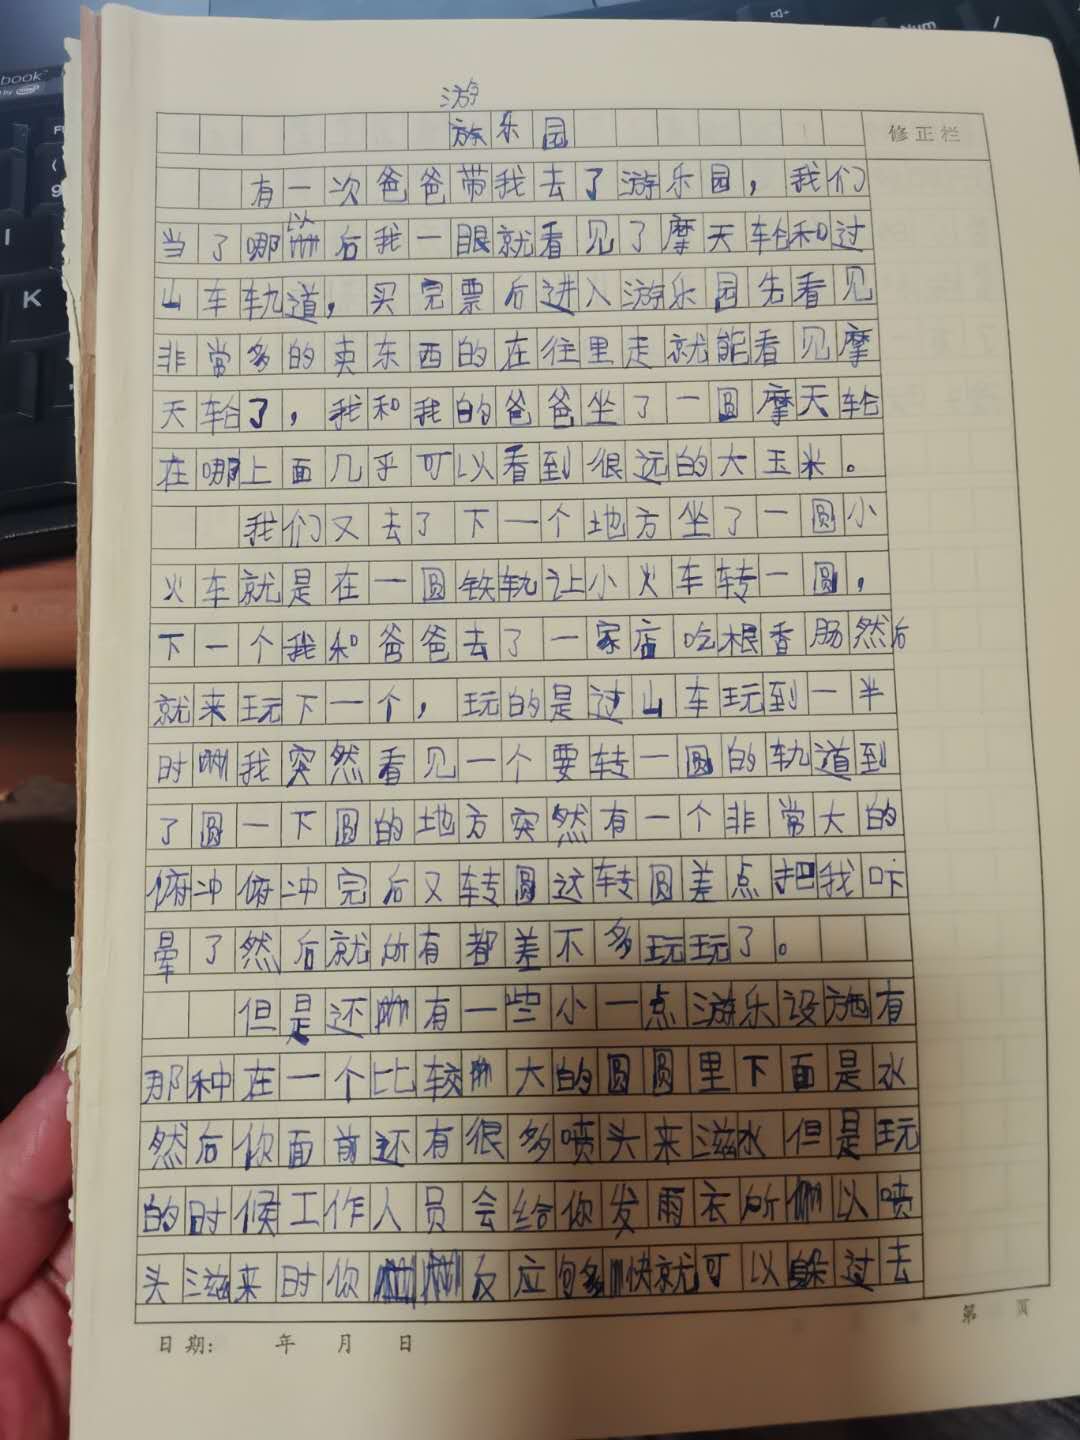 游
放乐园
修正栏
有一次爸爸带我去了游乐园，我们
当了哪以后我一眼就看见了摩天轮和过
山车轨道，买完票后进入游乐园先看见
非常多的卖东西的在往里走就能看见摩
天轮了，我和我的爸爸坐了一圆摩天轮
在哪上面几乎可以看到很远的大玉米。
我们又去了下一个地方坐了一圆小
火车就是在一圆铁轨让小火车转一圆，
下一个我和爸爸去了一家店吃根香肠然后
就来玩下一个，玩的是过山车玩到一半
时我突然看见一个要转一圆的轨道到
了圆一下圆的地方突然有一个非常大的
俯冲俯冲完后又转圆这转圆差点把我吓
晕了然后就所有都差不多玩玩了。
但是还有一些小一点游乐设施有
那种在一个比较大的圆圆里下面是水
然后你面前还有很多喷头来滋水但是玩
的时候工作人员会给你发雨衣所以喷
头滋来时你反应句多快就可以躲过去
日期: 年 月 日
第 页
K
Num
book